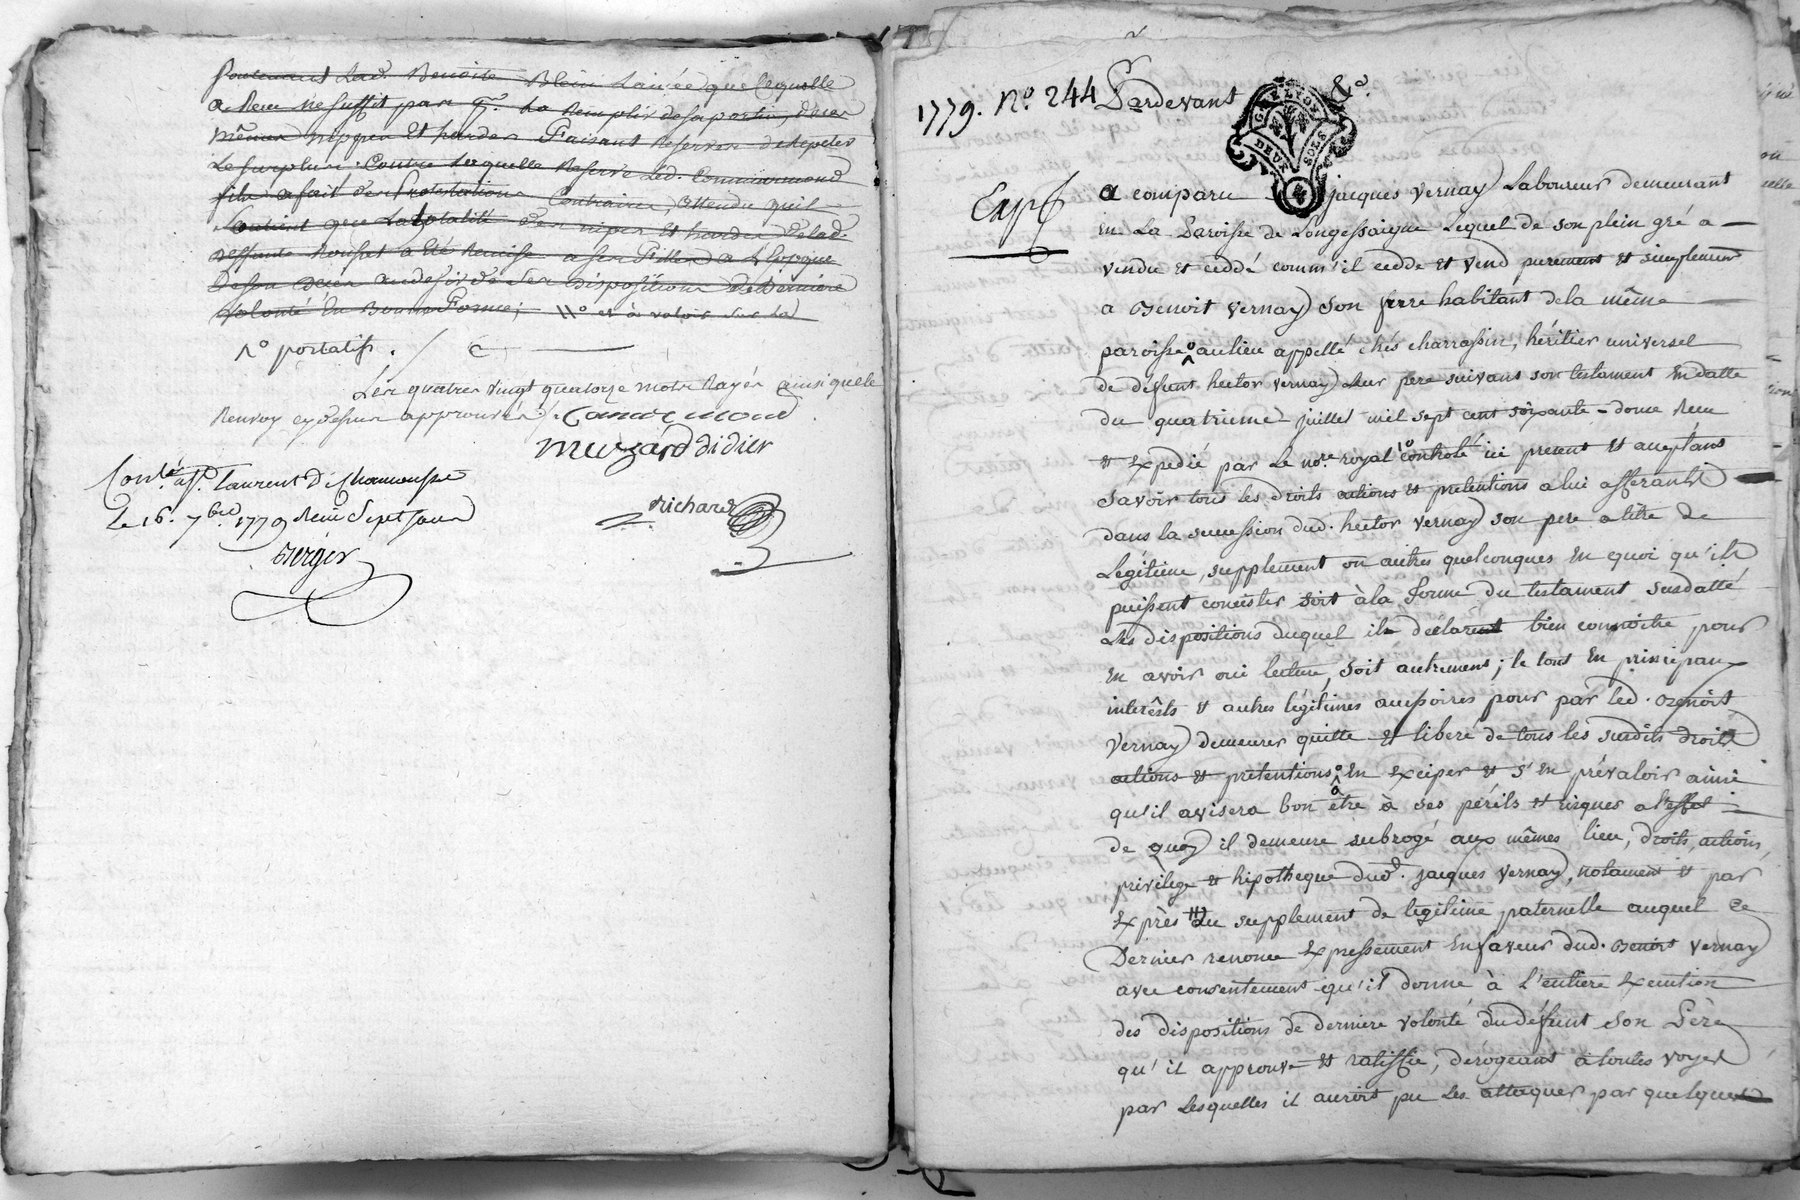 soutenant lad. Benoite Blein Laineé que lequelle
a Reçu ne suffit pas pr. La Remplir de sa portion desd.
mêmes nippes et hardes Faisant Reserves de Repeter
Le surplus; Contre Lesquelle Reserve Led. Commarmond
fils a fait des Protestations Contraires, attendu qu'il
soutient que La totalité des nipes et hardes de lad.
deffunte Rouset a été Remise a ses Filles a L'Epoque
de son decès au desir de ses dispositions de derniere
volonté En Bonne Forme; 11° et à valoir sur la
N° portatifs.
Les quatres vingt quatorze mots Rayés ainsi que le
Renvoy cy dessus approuvés. Comarmond
Muzard didier
Richard
Conlé. à St. Laurent de Chamousset
Le 16. 7bre 1779 Reçu Sept sous
Berger
1779. N° 244 Pardevant &a.
GNE LYON DEUX SOLS
Exp.
a comparu jacques vernay Laboureur demeurant
En La Paroisse de Longessaigne Lequel de son plein gré a
vendu et ceddé comm'il cedde et vend purement et simplement
a Benoit vernay son frere habitant de la même
paroisse au lieu appellé chés charrassin, héritier universel
de défunt hector vernay Leur pere suivant son testament En datte
du quatrieme juillet mil sept cent soixante-douze Reçu
et Expedié par Le nore. royal 1° controlé ici present et acceptant
Savoir tous les droits actions et prétentions a lui afferants
dans la succession dud. hector vernay son pere a titre de
Légitime, supplement ou autres quelconques En quoi qu'ils
puissent concister soit à la Forme du testament susdatté
Les dispositions duquel ils déclarent bien connoitre pour
En avoir oui lecture, soit autrement; le tout En principaux
interêsts et autres légitimes accessoires pour par led. Benoit
vernay demeurer quitte et liberé de tous les susdits droits
actions et prétentions En Exciper et s'En prévaloir ainsi
qu'il avisera bon être à ses périls et risques a l'effet
de quoy il demeure subrogé aux mêmes lieu, droits, actions,
privilege et hipotheque dud. jacques vernay, notament et par
Exprès du supplement de légitime paternelle auquel ce
Dernier renonce Expressement En faveur dud. Benoit vernay
avec consentement qu'il donne à L'entiere Execution
des dispositions de derniere volonté du défunt son Père
qu'il approuve et ratiffie, dérogeant à toutes voyes
par Lesquelles il auroit pu Les attaquer par quelques